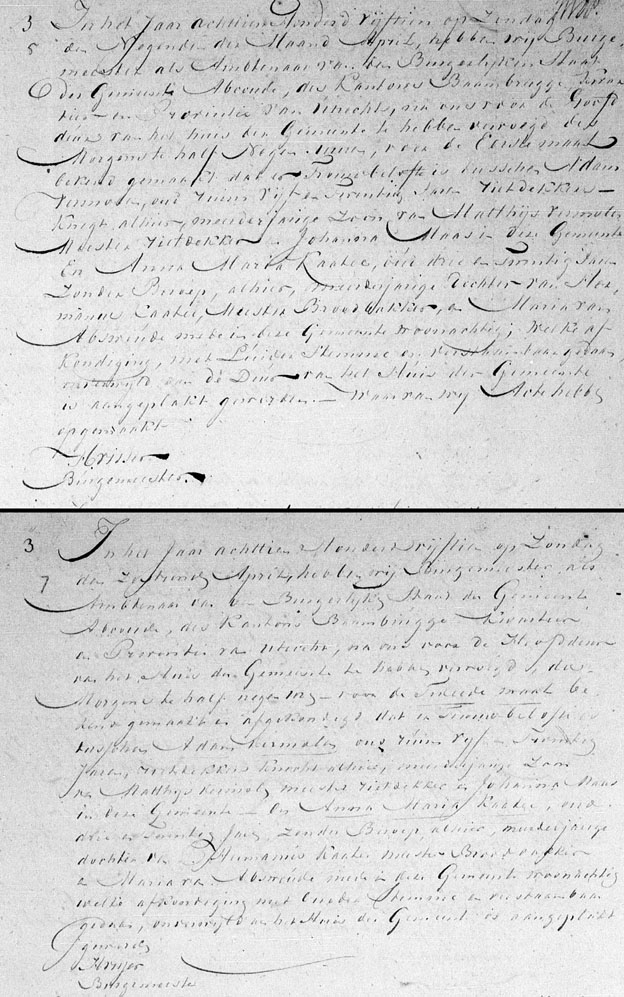 3 In het Jaar achttien Honderd vyftien op Zondag
5 de Negende der Maand April, hebben wy Burge
meester als Ambtenaar van den Burgerlyken Staat
6 der Gemeente Abcoude, des Kantons Baambrugge
en Provincie van Utrecht, na ons voor de Hoofd
deur van het huis der Gemeente te hebben vervoegd des
Morgens te half Negen uuren, voor de Eerste maal
bekend gemaakt dat er Trouwbelofte is tusschen Adam
Vermolen, oud ruim vyf en twintig Jaar Rietdekkers
Knegt, alhier, meerderjarige Zoon van Matthys Vermolen
Meester Rietdekker en Johanna Maas in deze Gemeente
En Anna Maria Kaatee, oud drie en twintig Jaar
Zonder Beroep, alhier, meerderjarige dochter van Her
manus Caatee, Meester Broodbakker, en Maria van
Abswoude mede in deze Gemeente woonachtig; welke af
kondiging, met Luider Stemme en verstaanbaar gedaan
aan de Deur van het Huis der Gemeente
is aangeplakt geworden. Waarvan wy Acte hebben
opgemaakt
Burgemeester
3 In het Jaar achttien Honderd vyftien op Zondag
7 den Zestiende April, hebben wy Burgemeester, als
Ambtenaar van den Burgerlyke Staat der Gemeente
Abcoude, des Kantons Baambrugge Kwartier
en Provincie van Utrecht, na ons voor de Hoofddeur
van het Huis der Gemeente te hebben vervoegd, des
Morgens te half negen ure voor de Tweede maal be
kend gemaakt en afgekondigd dat er Trouwbelofte is
tusschen Adam Vermolen oud ruim vyf en Twintig
Jaar, Rietdekkers Knecht alhier, meerderjarige Zoon
van Matthys Vermolen meester Rietdekker en Johanna Maas
in deze Gemeente En Anna Maria Kaatee, oud
drie en twintig Jaar, Zonder Beroep, alhier, meerderjarige
dochter van Hermanus Kaatee meester Broodbakker
en Maria van Abswoude mede in deze Gemeente woonachtig
welke afkondiging met luider Stemme en verstaanbaar
gedaan, aan het Huis der Gemeente is aangeplakt
geworden
Burgemeester